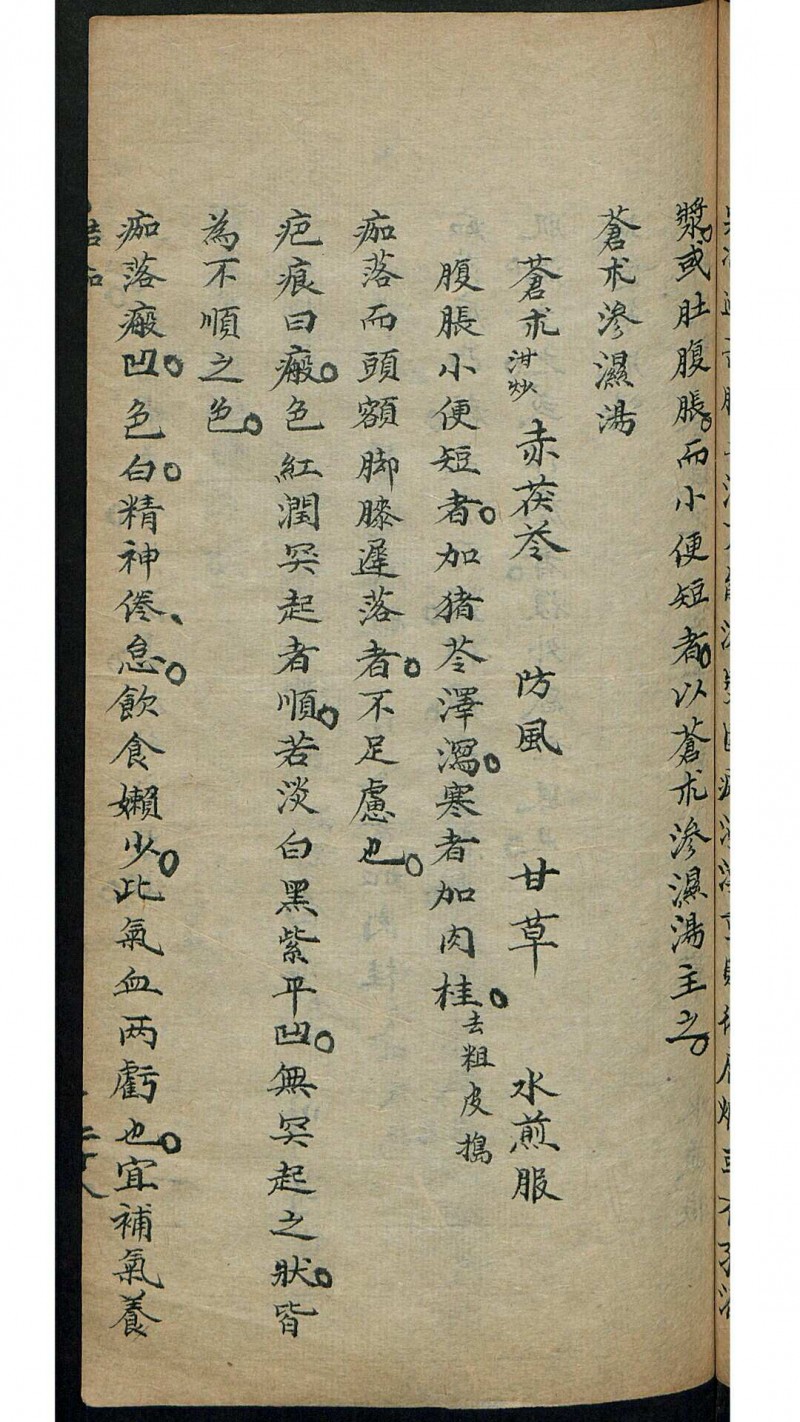 漿。或肚腹脹。而小便短者。以蒼朮滲濕湯主之。
蒼朮滲濕湯
蒼朮泔炒 赤茯苓 防風 甘草 水煎服
腹脹小便短者。加猪苓澤瀉。寒者加肉桂。去粗皮搗
痂落而頭額脚膝遲落者。不足慮也。
疤痕曰瘢。色紅潤突起者順。若淡白黑紫平凹。無突起之狀。皆
為不順之色。
痂落瘢凹。色白。精神倦、怠。飲食懶少。此氣血两虧也。宜補氣養